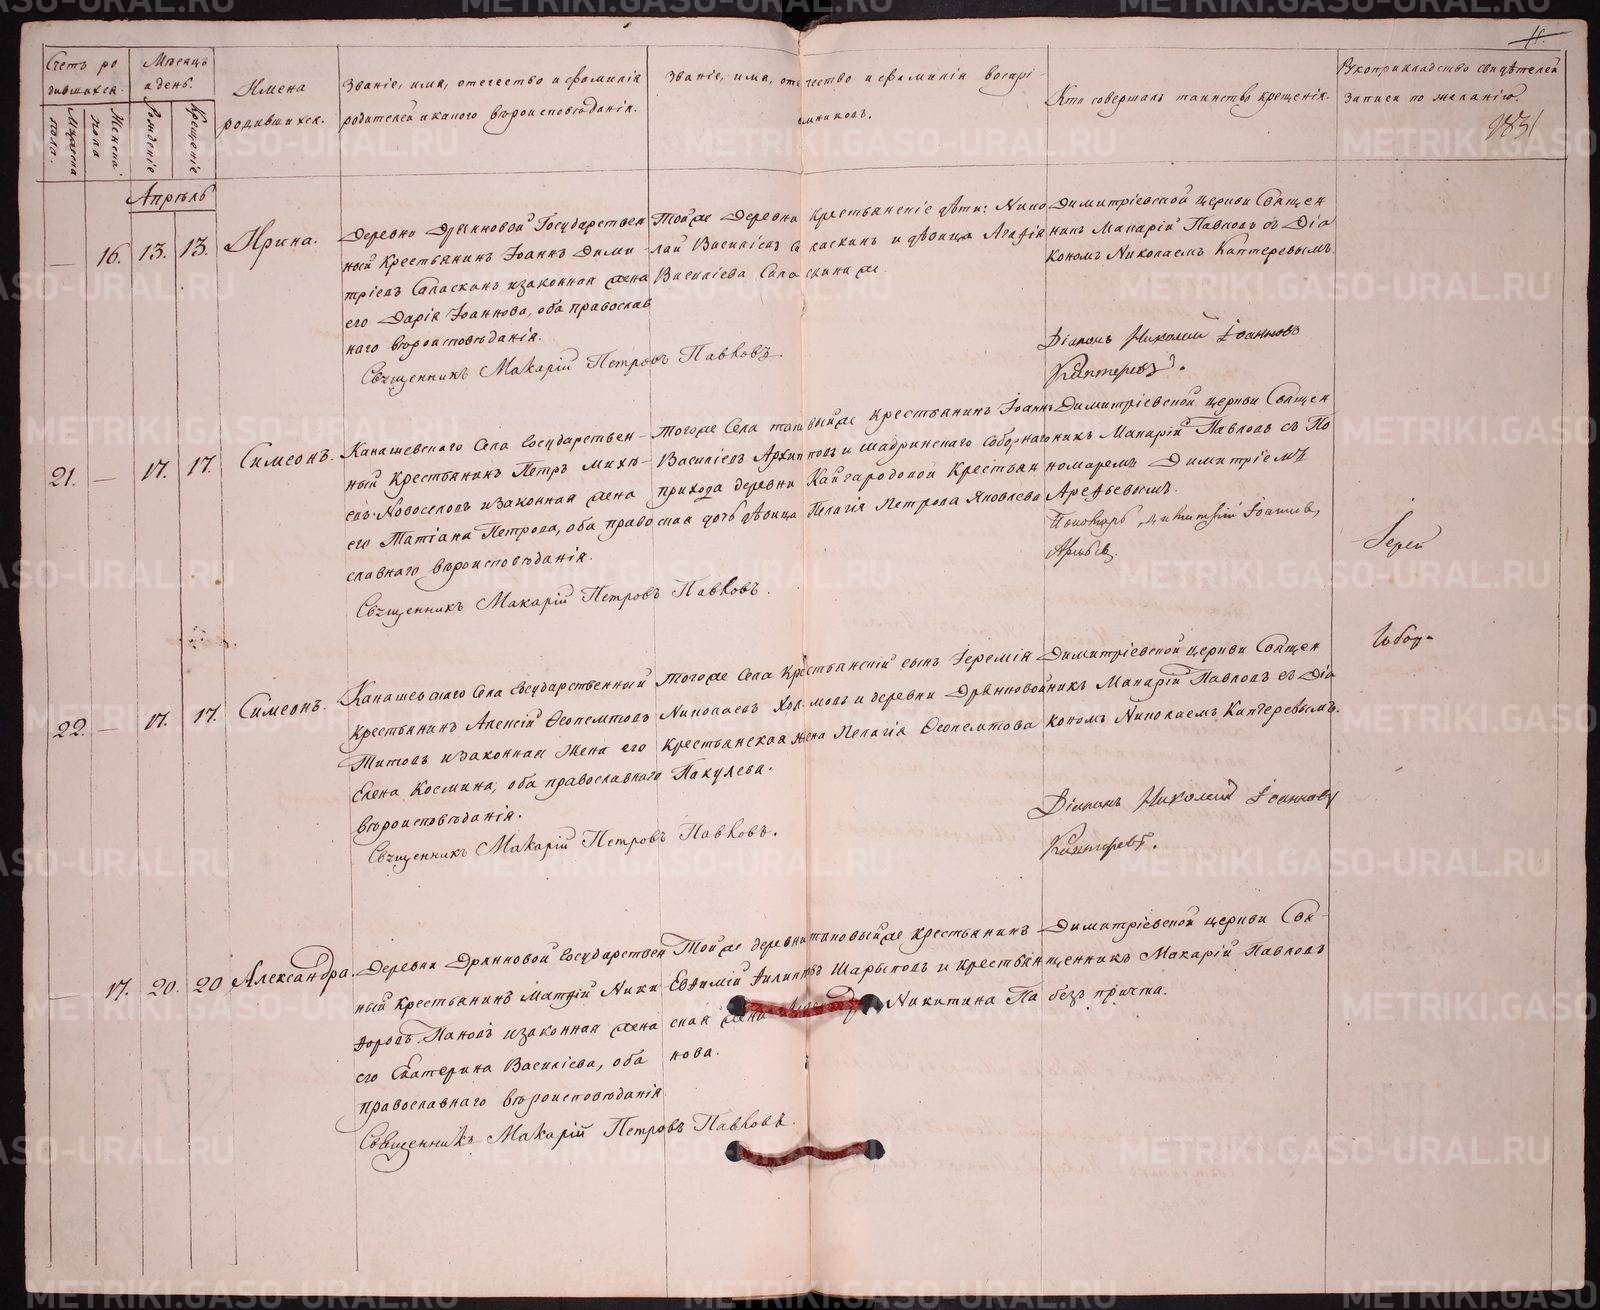 Счетъ ро
дившихся.
Мужеска
пола.
Женска
пола
Мѣсяцъ
и день.
Рожденіе
Крещеніе
Имена
родившихся.
Званіе, имя, отечество и фамилія
родителей и какого вѣроисповѣданія.
Званіе, имя, отечество и фамилія воспрі-
емниковъ.
Кто совершалъ таинство крещенія.
Рукоприкладство свидѣтелей
записи по желанію.
Апрѣль
— 16. 13. 13.
Ирина.
Деревни Дрянновой Государствен
ный крестьянинъ Іоаннъ Дими-
тріевъ Саласкинъ и законная жена
его Дарія Іоаннова, оба православ
наго вѣроисповѣданія.
Священникъ Макарій Петровъ Павловъ.
Той же деревни крестьянскіе дѣти: Нико
лай Василіевъ Саласкинъ и дѣвица Агафія
Василіева Саласкина же
Димитріевской церкви Священ
никъ Макарій Павловъ съ Діа
кономъ Николаемъ Каптеревымъ.
Діаконъ Николай Іоанновъ
Каптеревъ.
21. — 17. 17.
Симеонъ.
Канашевского Села Государствен-
ный крестьянинъ Петръ Михѣ-
евъ Новоселовъ и законная жена
его Татіана Петрова, оба право
славнаго вѣроисповѣданія.
Священникъ Макарій Петровъ Павловъ.
Того же Села таковый же крестьянинъ Іоаннъ
Василіевъ Архиповъ и Шадринскаго Соборнаго
прихода деревни Кайгородовой Крестьян
ская дочь дѣвица Пелагія Петрова Яковлева
Димитріевской церкви Священ
никъ Макарій Павловъ съ По
номаремъ Димитріемъ
Арефьевымъ.
Пономарь Димитрій Іоанновъ
Іерей
22. — 17. 17.
Симеонъ.
Канашевскаго Села Государственный
крестьянинъ Алексій Ѳеопемптовъ
Титовъ и законная жена его
Елена Космина, оба православнаго
вѣроисповѣданія.
Священникъ Макарій Петровъ Павловъ.
Того же Села крестьянскій сынъ Іеремія
Николаевъ Холмовъ и деревни Дрянновой
крестьянская жена Пелагія Ѳеопемптова
Пакулева.
Димитріевской церкви Священ
никъ Макарій Павловъ съ Діа
кономъ Николаемъ Каптеревымъ.
Діаконъ Николай Іоанновъ
Каптеревъ.
— 17. 20. 20
Александра.
Деревни Дрянновой Государствен
ный крестьянинъ Матѳій Ники
форовъ Пановъ и законная жена
его Екатерина Василіева, оба
православнаго вѣроисповѣданія
Священникъ Макарій Петровъ Павловъ.
Той же деревни таковый же крестьянинъ
Евфимій Филиповъ Шарыповъ и крестьян
ская жена Никитина Па
нова.
Димитріевской церкви Свя-
щенникъ Макарій Павловъ
безъ причта.
METRIKI.GASO-URAL.RU